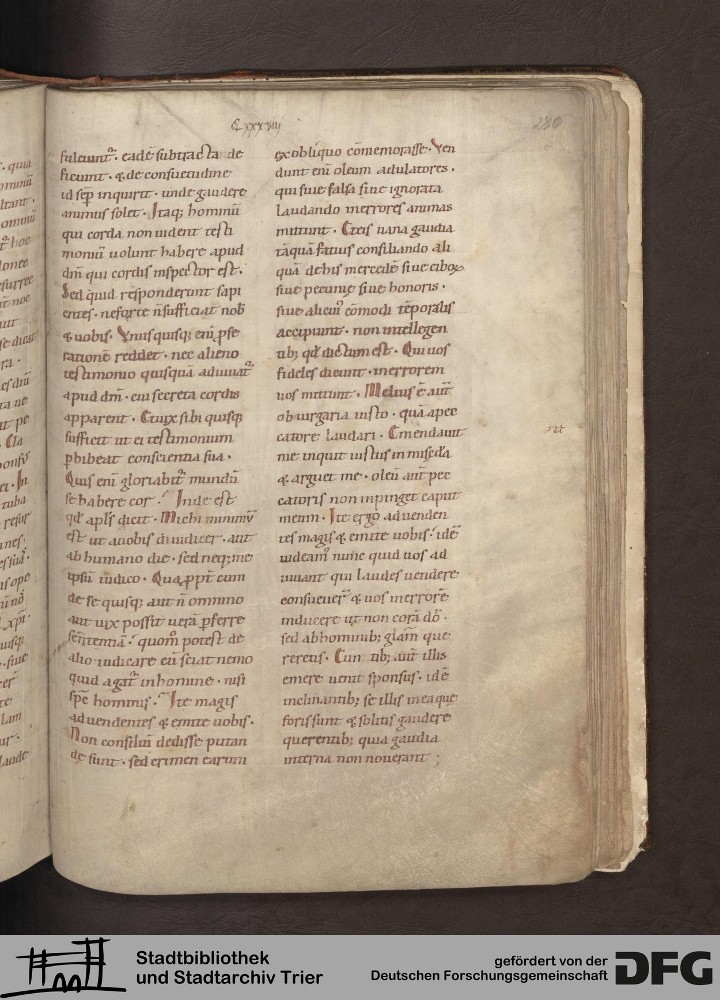 Cxxxviiij
280
fulciunt᷑ · eadē subtracta de
ficiunt · & de consuetudine
id sēp inquirit · unde gaudere
animus solet · Itaq; hominū
qui corda non uident testi
moniū uolunt habere apud
dm̄ qui cordis inspector est ·
Sed quid respondernt sapi
entes · ne forte ñ sufficiat nob̄
& uobis · Vnusquisq; eni͞ ꝑ se
rationē reddet · nec alieno
testimonio quisquā adiuuat᷑
apud dm̄ · cui secreta cordis
apparent · Et uix sibi quisq;
sufficit ut ei testimonium
ꝑhibeat conscientia sua ·
Quis eni͞ gloriabit᷑ mundū
se habere cor ? Inde est
qd̄ apls̄ dicit · Michi minimū
est ut a uobis diiudicer · aut
ab humano die · sed neq; me
ipsū iudico · Quapp̄t cum
de se quisq; aut ñ omnino
aut uix possit uerā ꝓferre
sententiā · quom̊ potest de
alio iudicare cū sciat nemo
quid agat᷑ in homine · nisi
sp̄c hominis · Ite magis
ad uendentes & emite uobis ·
Non consiliū dedisse putan
de sunt · sed crimen earum
ex obliquo cōmemorasse · Ven
dunt eni͞ oleum adulatores ·
qui siue falsa siue ignorata
laudando in errores animas
mittunt · Et eis uana gaudia
tāquā fatuis consiliando ali
quā de his mercedē siue ciboꝝ
siue pecunie siue honoris ·
siue alicui͞ cōmodi tēporalis
accipiunt · non intellegen
tib; qd̄ dictum est · Qui uos
fideles dicunt · in errorem
uos mittunt · Melius ē aut̄
obiurgari a iusto · quā a pec
catore laudari · Emendauit
me inquit iustus in misc̄da
& arguet me · oleū aut̄ pec
catoris non inpinget caput
meum · Ite ergo ad uenden
tes magis & emite uobis · idē
uideam᷒ nunc quid uos ad
iuuant qui laudes uendere
consueuer̄ & uos in errorē
inducere ut non corā dō ·
sed ab hominib; glām que
reretis · Cum tib; aut̄ illis
emere uenit sponsus · id ē
inclinantib; se illis in ea que
foris sunt & solitis gaudere
querentib; quia gaudia
interna non nouerant ;
Stadtbibliothek
und Stadtarchiv Trier
gefördert von der
Deutschen Forschungsgemeinschaft
DFG